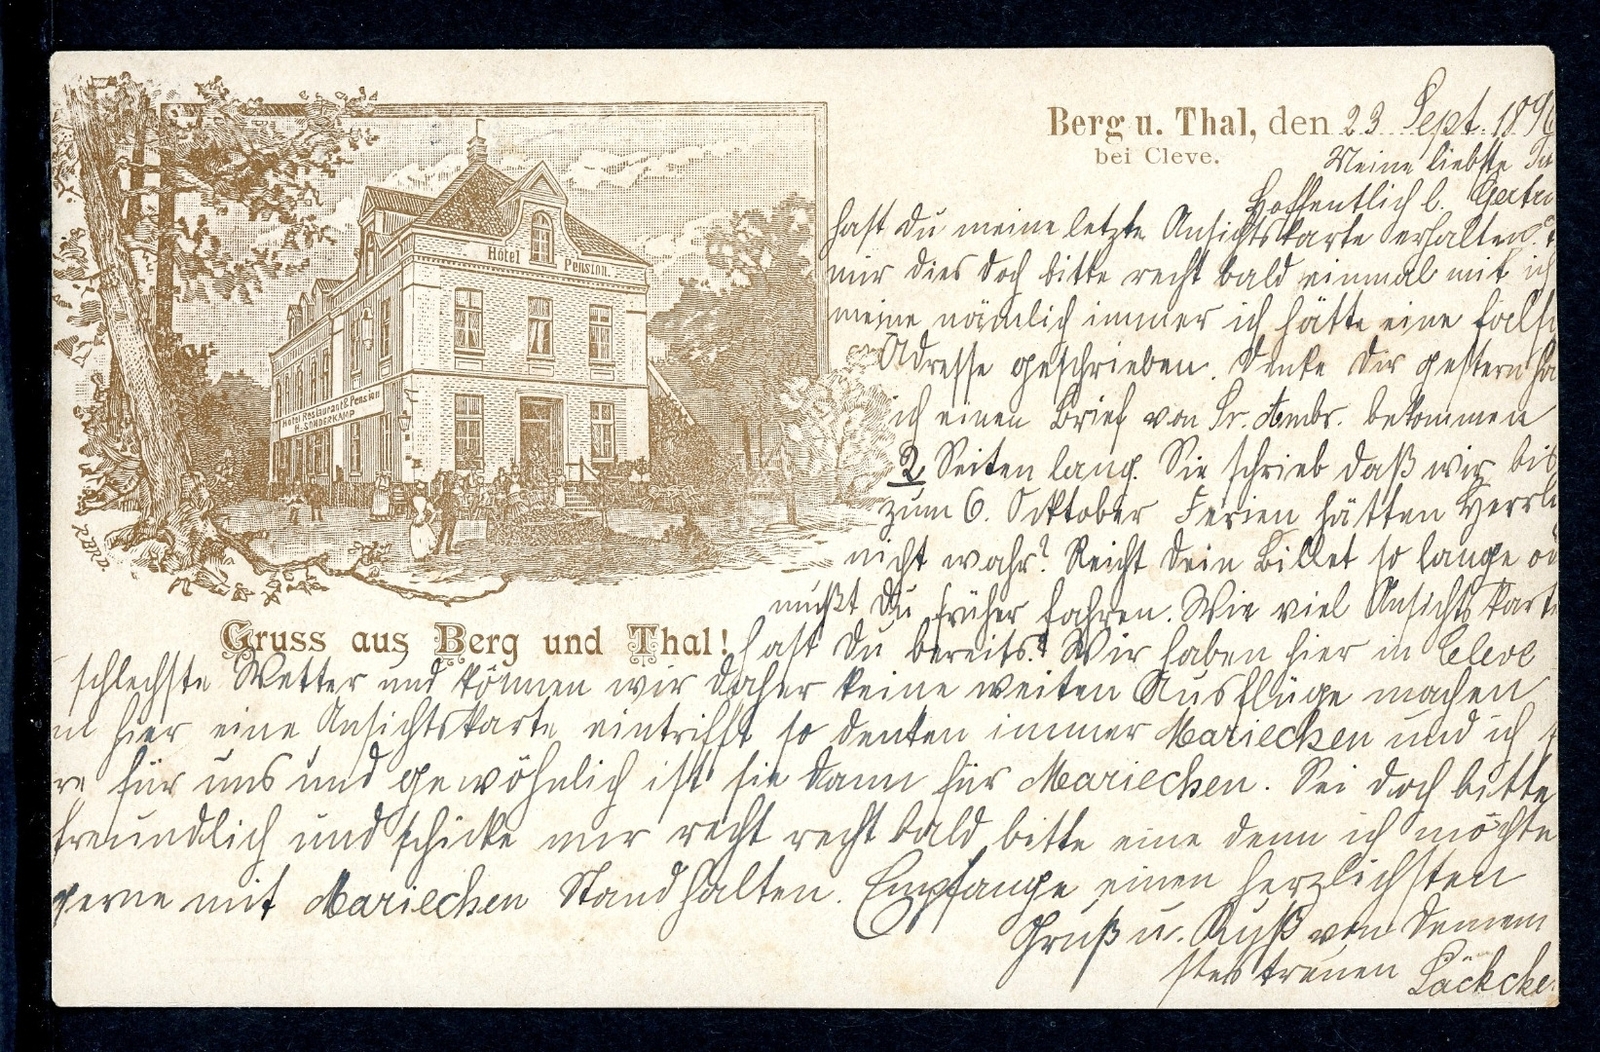 Berg u. Thal, den 23. Sept. 189
bei Cleve.
Meine liebste
Hoffentlich l.
hast du meine letzte Ansichtskarte erhalten.
mir dies doch bitte recht bald einmal mit ich
meine nämlich immer ich hätte eine falsc
Adresse geschrieben. Denke Dir gestern ha
ich einen Brief von Sr. Ambr. bekommen
2 Seiten lang. Sie schrieb daß wir bis
zum 6. Ocktober Ferien hätten Herrli
nicht wahr? Reicht Dein Billet so lange od
mußt Du früher fahren. Wie viel Ansichtskarte
hast Du bereits? Wir haben hier in Cleve
schlechste Wetter und können wir daher keine weiten Ausflüge machen
n hier eine Ansichtskarte eintrifft so denken immer Mariechen und ich
re für uns und gewöhnlich ist sie dann für Mariechen. Sei doch bitte
freundlich und schicke mir recht recht bald bitte eine denn ich möchte
gerne mit Mariechen Stand halten. Empfange einen herzlichsten
Gruß u. Kuß von Deinem
stets treuen
Hôtel Pension.
Hôtel Restaurant & Pension
H. SONDERKAMP
Gruss aus Berg und Thal!